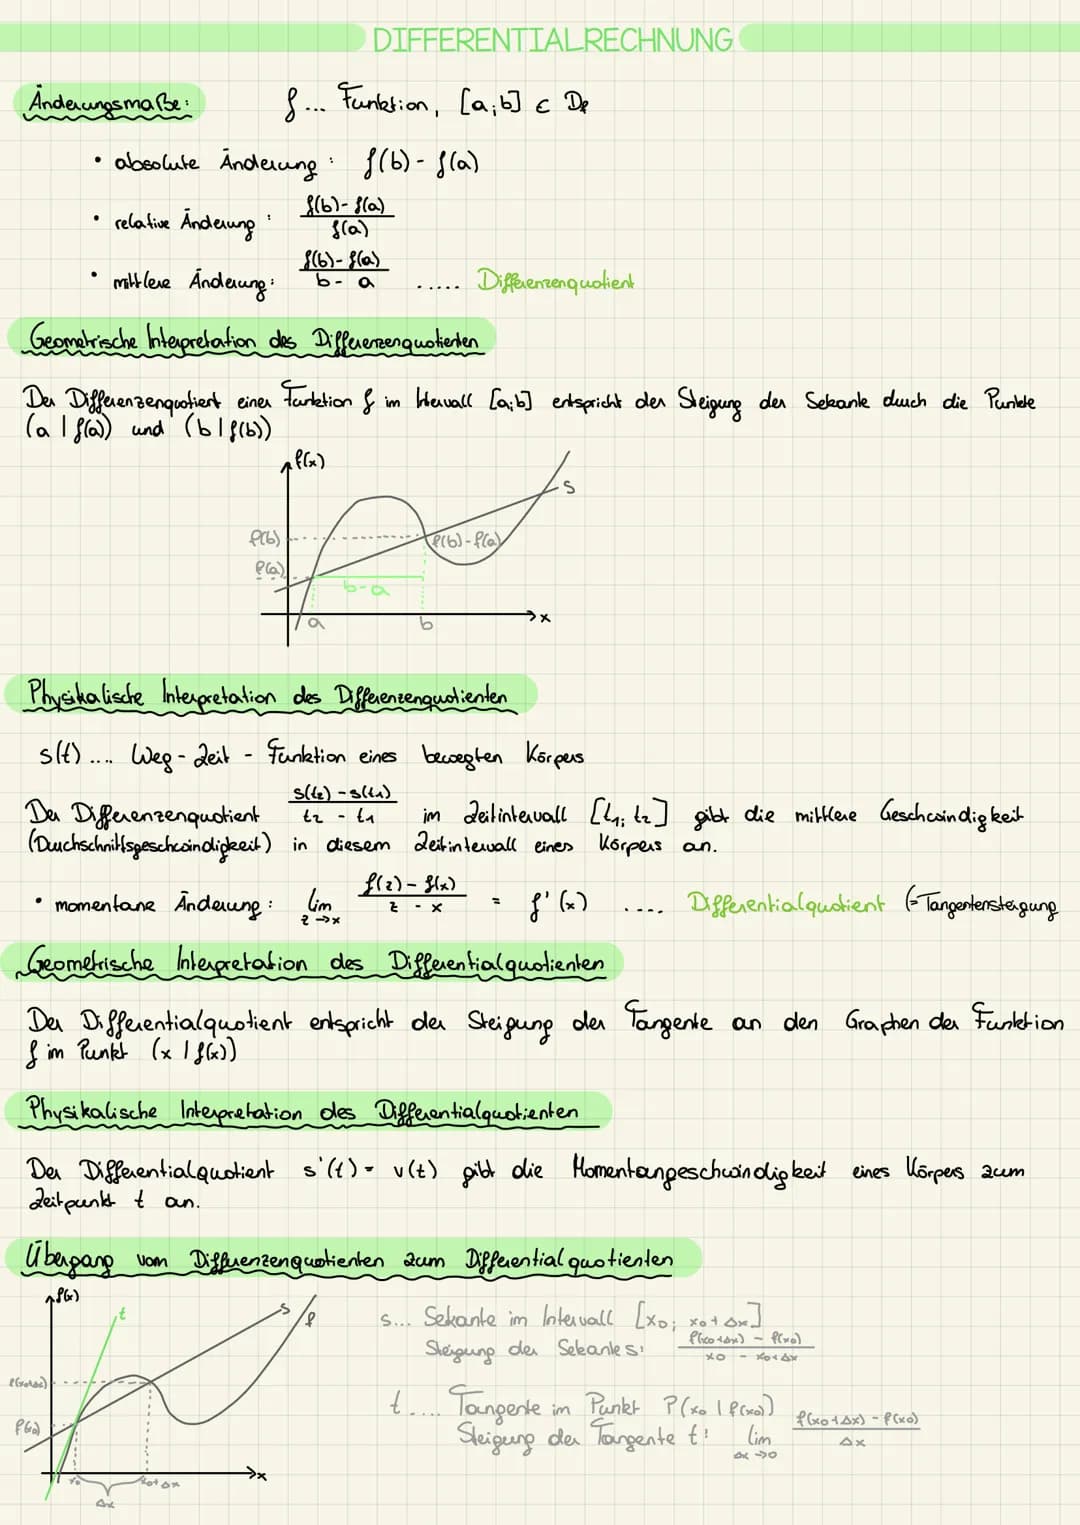 DIFFERENTIALRECHNUNG
Änderungsmaße: f... Funktion, [a;b] ∈ Df
• absolute Änderung: f(b) - f(a)
• relative Änderung: f(b) - f(a) / f(a)
• mittlere Änderung: f(b) - f(a) / b - a ..... Differenzenquotient
Geometrische Interpretation des Differenzenquotienten
Der Differenzenquotient einer Funktion f im Intervall [a;b] entspricht der Steigung der Sekante durch die Punkte
(a | f(a)) und (b | f(b))
f(x)
s
f(b)
f(b)-f(a)
f(a)
b-a
a b x
Physikalische Interpretation des Differenzenquotienten
s(t) .... Weg - Zeit - Funktion eines bewegten Körpers
Der Differenzenquotient s(t2) - s(t1) / t2 - t1 im Zeitintervall [t1; t2] gibt die mittlere Geschwindigkeit
(Durchschnittsgeschwindigkeit) in diesem Zeitintervall eines Körpers an.
• momentane Änderung: lim z→x f(z) - f(x) / z - x = f'(x) .... Differentialquotient (=Tangentensteigung
Geometrische Interpretation des Differentialquotienten
Der Differentialquotient entspricht der Steigung der Tangente an den Graphen der Funktion
f im Punkt (x | f(x))
Physikalische Interpretation des Differentialquotienten
Der Differentialquotient s'(t) = v(t) gibt die Momentangeschwindigkeit eines Körpers zum
Zeitpunkt t an.
Übergang vom Differenzenquotienten zum Differentialquotienten
f(x)
t
s
f
f(x0+Δx)
f(x0)
x0 x0+Δx x
Δx
s... Sekante im Intervall [x0; x0+Δx]
Steigung der Sekante s: f(x0+Δx) - f(x0) / x0 - x0+Δx
t .... Tangente im Punkt P(x0 | f(x0))
Steigung der Tangente t: lim Δx→0 f(x0+Δx) - f(x0) / Δx